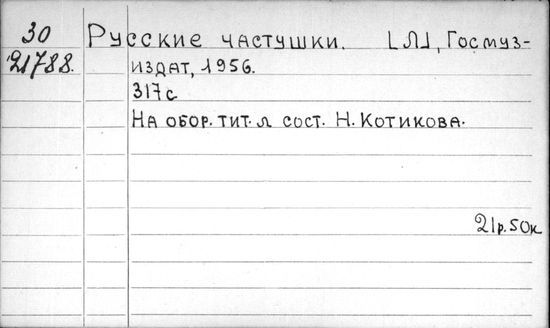 30
21788.
Русские частушки. [Л], Госмуз-
издат, 1956.
317с
На обор. тит. л сост. Н. Котикова.
21р.50к